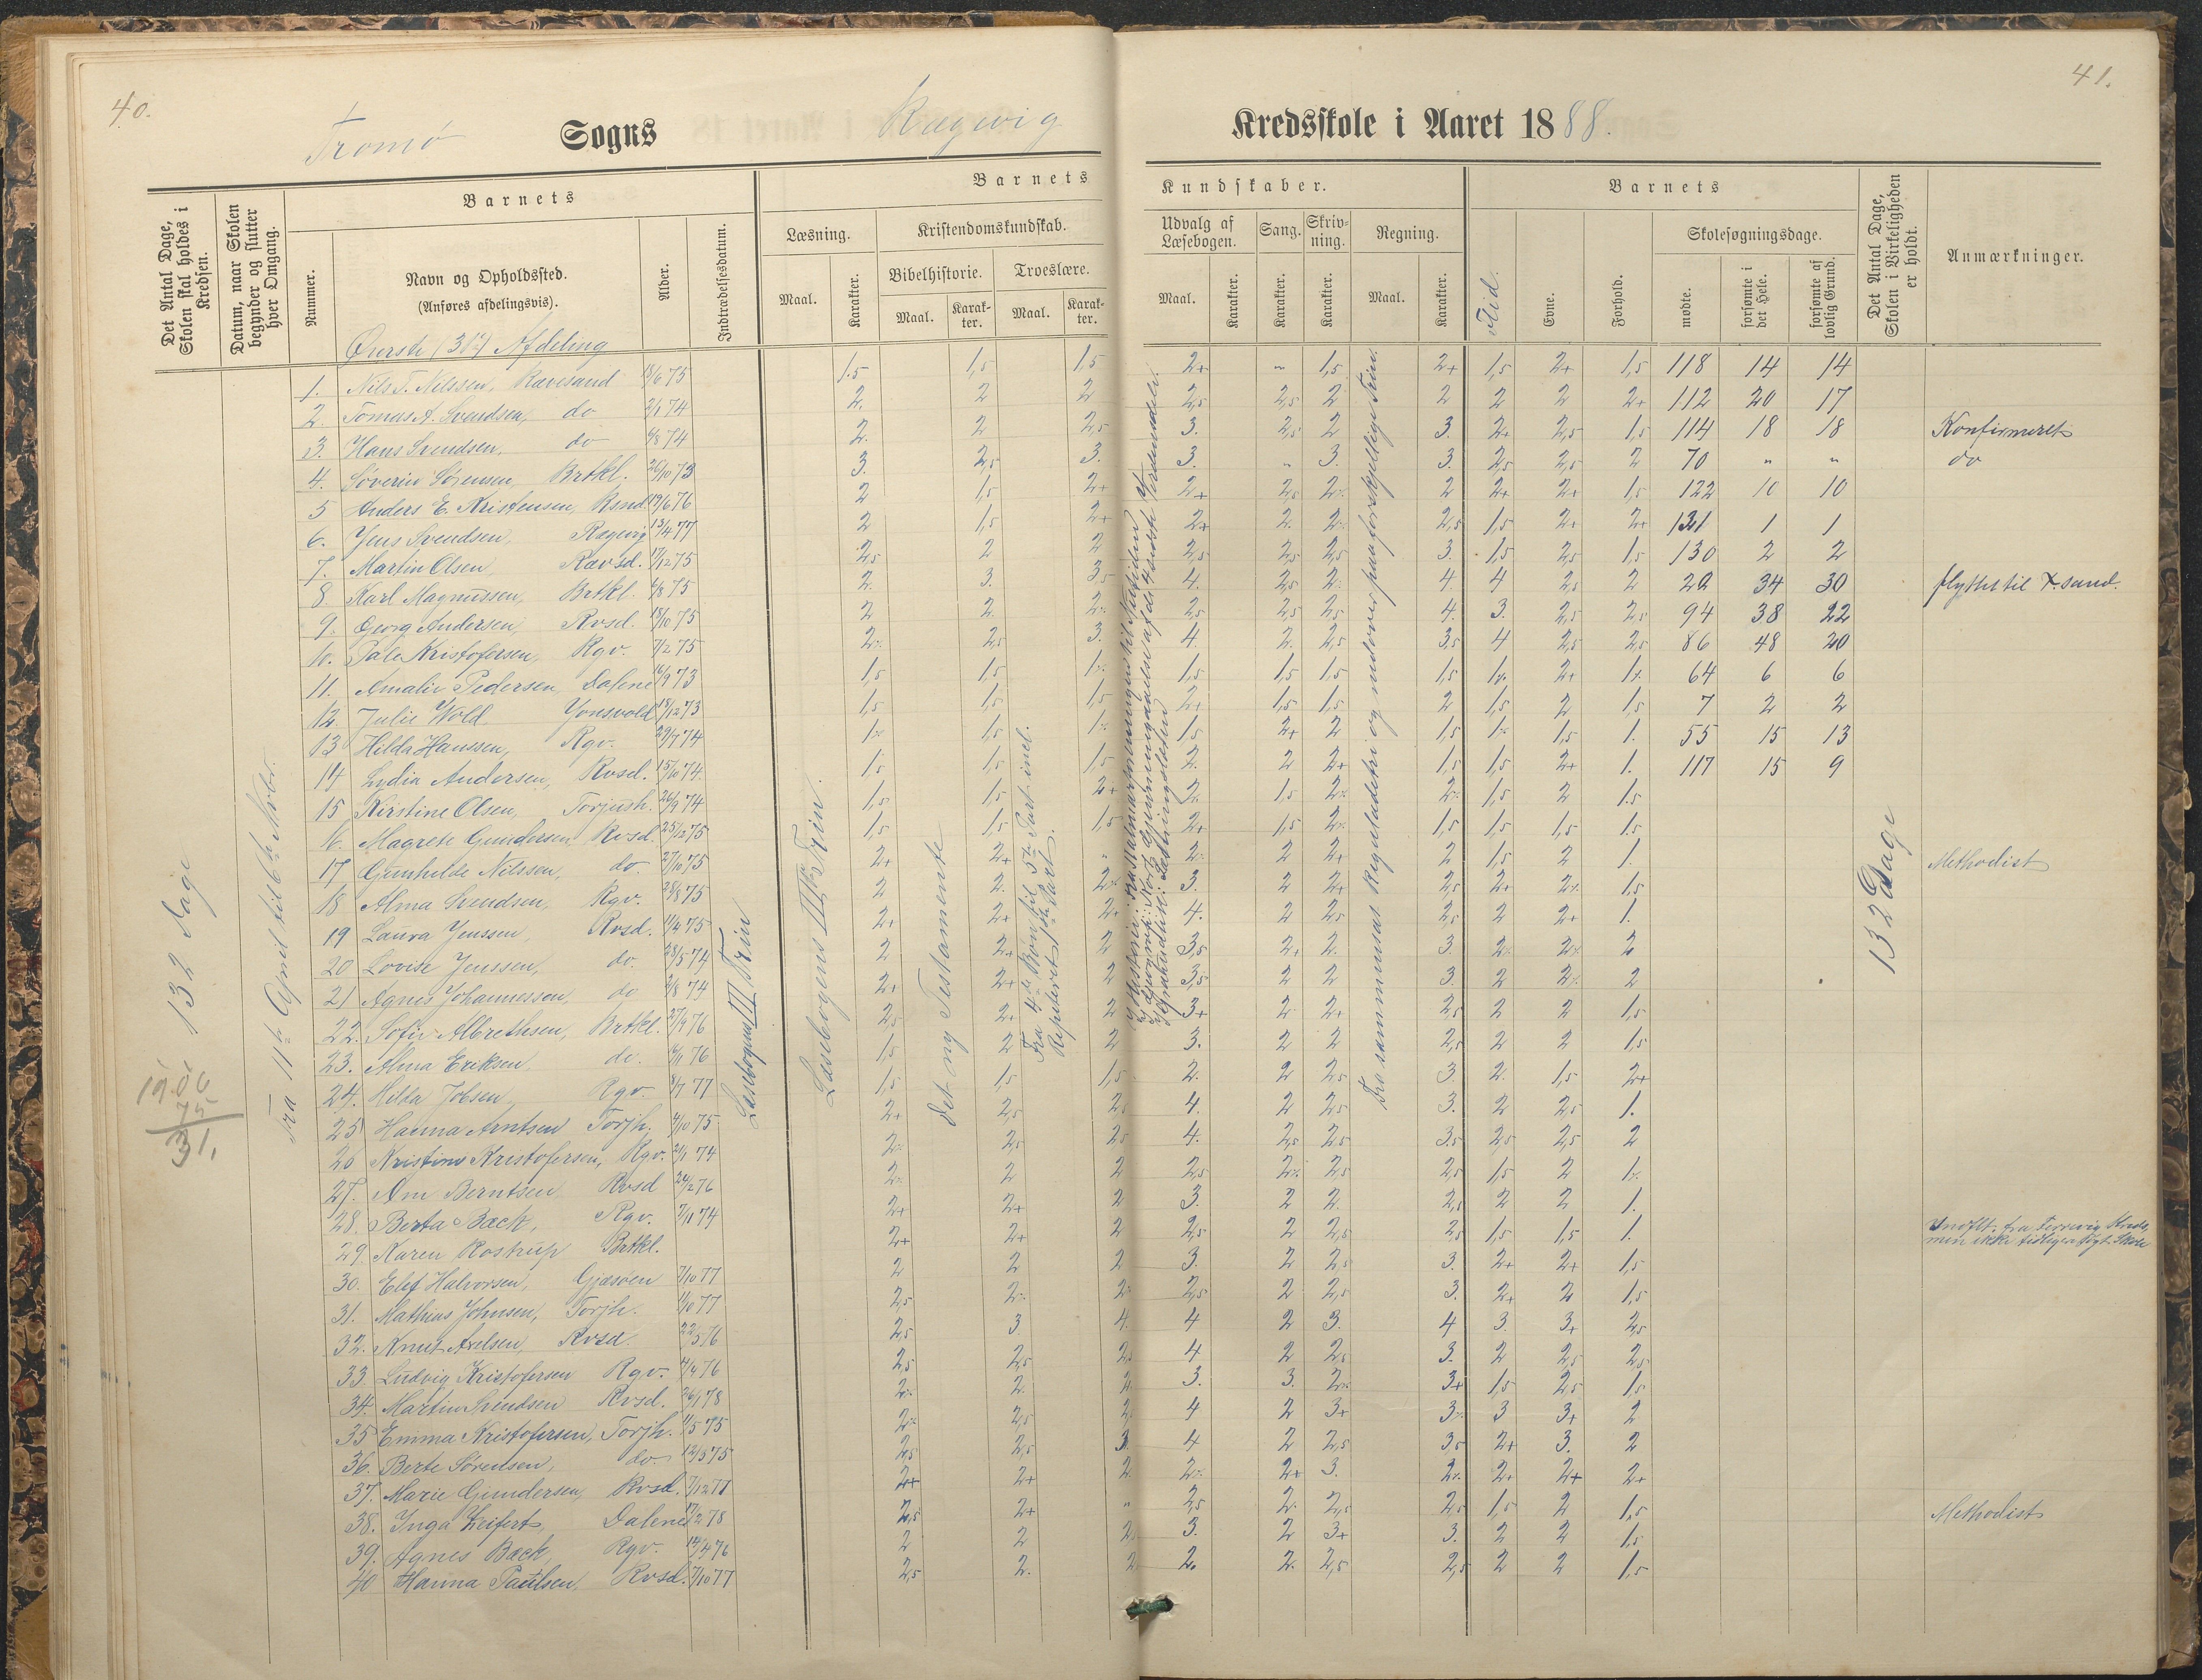 40.
41.
Tromø Sogns Rægevig Kredsskole i Aaret 1888.
Det Antal Dage, Skolen skal holdes i Kredsen.
Datum, naar Skolen begynder og slutter hver Omgang.
Barnets
Nummer.
Navn og Opholdssted.
(Anføres afdelingsvis).
Alder.
Indtrædelsesdatum.
Barnets Kundskaber.
Læsning.
Maal.
Karakter.
Kristendomskundskab.
Bibelhistorie.
Maal.
Karakter.
Troeslære.
Maal.
Karakter.
Udvalg af Læsebogen.
Maal.
Karakter.
Sang.
Karakter.
Skrivning.
Karakter.
Regning.
Maal.
Karakter.
Barnets
Flid.
Evne.
Forhold.
Skolesøgningsdage.
mødte.
forsømte i det Hele.
forsømte af lovlig Grund.
Det Antal Dage, Skolen i Virkeligheden er holdt.
Anmærkninger.
Øverste (3die) Afdeling
132 Dage
Fra 11te April til 6te Novbr.
Læsebogens III Trin
Læsebogens IIIdie Trin.
Det ny Testamente
Fra 4de Bøn til 5te Part incl.
Repeteret 1ste Part.
Fra sammensat Reguladetri og udover paa forskjellige Trin.
132 Dage
1. Nils T. Nilssen, Rævesand 18/6 75 1.5 1,5 1,5 2+ " 1,5 2+ 1,5 2+ 1,5 118 14 14
2. Tomas A. Svendsen, do 2/1 74 2. 2 2 2,5 2,5 2 2 2 2 2+ 112 20 17
3. Hans Svendsen, do 6/8 74 2. 2 2,5 3. 2,5 2 3. 2+ 2,5 1,5 114 18 18 Konfirmeret
4. Søverin Sørensen, Brtkl. 26/10 73 3. 2,5 3. 3. " 3. 3. 2,5 2,5 2 70 " " do
5 Anders E. Kristensen, Rsnd. 19/6 76 2 1,5 2+ 2+ 2,5 2% 2 2+ 2+ 1,5 122 10 10
6. Jens Svendsen, Rægevig 13/4 77 2 1,5 2+ 2+ 2. 2% 2,5 1,5 2+ 2+ 131 1 1
7. Martin Olsen, Rævsd. 17/12 75 2,5 2 2 2,5 2,5 2,5 3. 1,5 2,5 1,5 130 2 2
8. Karl Magnussen, Brtkl. 6/8 75 2. 3. 3,5 4. 2,5 2% 4. 4 2,5 2 22 34 30 flyttet til X.sand.
9. Georg Andersen, Rvsd. 18/10 75 2 2. 2% 2,5 2,5 2,5 4. 3. 2,5 2,5 94 38 22
10. Tale Kristofersen, Rgv. 7/2 75 2% 2,5 3. 4. 2. 2,5 3,5 4 2,5 2,5 86 48 20
11. Amalie Pedersen, Dalene 16/9 73 1,5 1,5 1% 1,5 1,5 1,5 1,5 1% 2+ 1% 64 6 6
12. Julie Wold Jonsvold 18/12 73 1,5 1,5 1,5 2+ 1,5 1,5 2 1,5 2 1,5 7 2 2
13 Hilda Hanssen, Rgv. 29/7 74 1% 1,5 1% 1,5 2+ 2 1,5 1% 1,5 1. 55 15 13
14 Lydia Andersen, Rvsd. 15/10 74 1,5 1,5 1,5 2. 2 2+ 1,5 1,5 2+ 1. 117 15 9
15 Kirstine Olsen, Torjush. 26/9 74 1,5 1,5 2+ 2. 1,5 2% 2% 1,5 2 1.5
16. Magrete Gundersen, Rvsd. 25/12 75 1,5 1,5 1,5 2+ 1,5 2% 1,5 1,5 1,5 1.5
17 Gunhilde Nilssen, do. 27/10 75 2+ 2+ " 2% 2 2+ 2 1,5 2 1. Methodist
18 Alma Svendsen, Rgv. 28/8 75 2 2. 2% 3. 2 2+ 2,5 2+ 2% 1,5
19 Laura Jenssen, Rvsd. 11/4 75 2+ 2+ 2+ 4. 2 2,5 2,5 2 2+ 1.
20 Lovise Jenssen, do. 28/5 74 2 2+ 2 3,5 2+ 2. 3. 2% 2% 2
21 Agnes Johannessen, do 2/8 74 2+ 2+ 2 3,5 2 2 3. 2 2% 2
22. Sofie Albrethsen, Brtkl. 27/9 76 2,5 2+ 2 3+ 2 2+ 2,5 2 2 1,5
23. Alma Eriksen, do. 6/1 76 1,5 2 2 3. 2 2 2,5 2 2 1,5
24. Hilda Jobsen, Rgv. 8/7 77 1,5 1,5 1,5 2. 2 2,5 3. 2. 1,5 2+
25 Hanna Arntsen Torjh. 4/10 75 2+ 2,5 2,5 4. 2 2,5 3. 2 2,5 1.
26 Kristine Kristofersen, Rgv. 2/1 74 2% 2,5 2,5 4. 2,5 2,5 3,5 2,5 2,5 2
27. Am Berntsen, Rvsd 24/2 76 2% 2 2 2,5 2% 2,5 2,5 1,5 2 1%
28. Berta Bæck, Rgv. 7/11 74 2+ 2+ 2 3. 2 2. 2,5 2 2 1.
29. Karen Rostrup Brtkl. 2+ 2+ 2 2,5 2 2,5 2,5 1,5 1,5 1. Indflt. fra Færvig Kreds, men ikke tidligere søgt Skole
30. Elef Halvorsen, Gjæsøen 7/10 77 2 2 2 3. 2 2,5 3. 2+ 2+ 1,5
31. Mathias Johnsen, Torjh. 11/10 77 2,5 2% 2% 2,5 2 2,5 3. 2+ 2 1,5
32. Knut Axelsen, Rvsd. 22/5 76 2,5 3 4. 4 2 3. 4 3. 3+ 2,5
33 Ludvig Kristofersen Rgv. 4/4 76 2,5 2,5 2,5 4 2 2,5 3. 2 2,5 2,5
34. Martin Svendsen Rvsd. 26/1 78 2% 2. 2. 3. 3. 2% 3+ 1,5 2,5 1,5
35 Emma Kristofersen, Torjh. 1/5 75 2% 2,5 2, 4 2 3+ 3% 3 3+ 2
36. Berte Sørensen, do 12/3 75 2,5 2,5 3. 4 2 2,5 3,5 2+ 3. 2
37. Marie Gundersen, Rvsd. 7/12 77 2+ 2+ 2. 2% 2+ 3. 2% 2+ 2+ 2+
38. Inga Zeifert, Dalene 17/2 78 2,5 2+ " 2,5 2% 2,5 2,5 1,5 2 1,5 Methodist
39. Agnes Bæck, Rgv. 12/4 76 2 2 2. 3. 2 3+ 3. 2 2 1,5
40 Hanna Paulsen, Rvsd. 7/10 77 2,5 2. 2. 2. 2. 2,5 2,5 2 2 1,5
75
31.